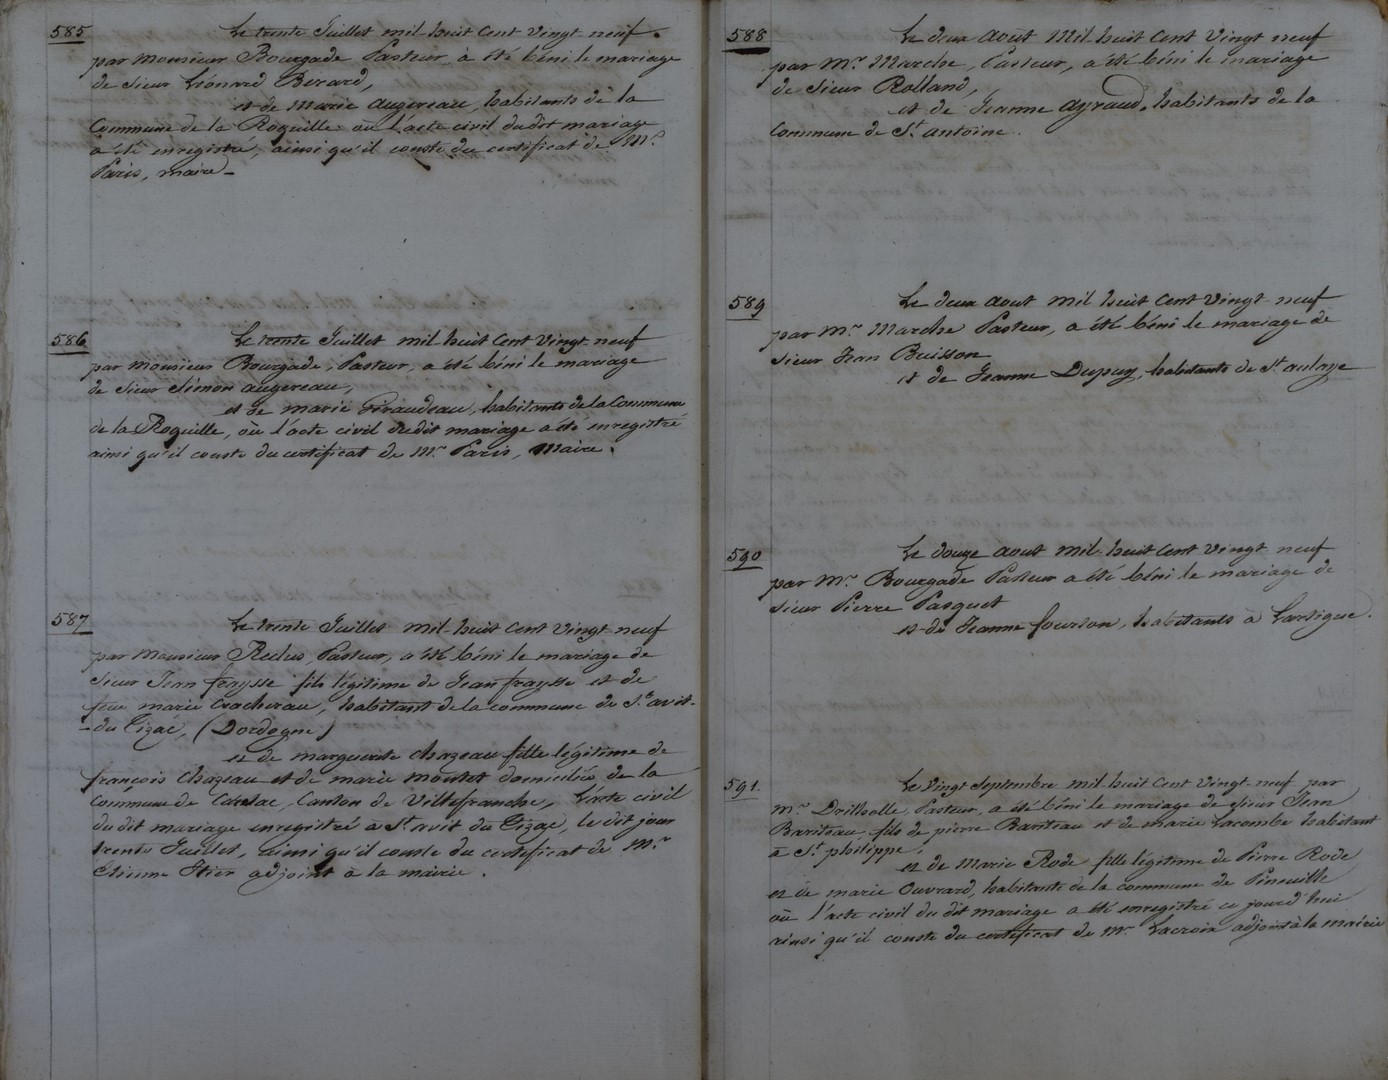 585
Le trente Juillet mil huit Cent Vingt neuf.
par Monsieur Bourgade Pasteur, à été béni le mariage
de Sieur Léonard Berard,
et de Marie augereau, habitants de la
Commune de la Roquille où l'acte civil du dit mariage
a été enregistré, ainsi qu'il conste du certificat de Mr.
Paris, maire
586
Le trente Juillet mil huit Cent Vingt neuf
par monsieur Bourgade, Pasteur, a été béni le mariage
de Sieur Simon augereau,
et de marie Giraudeau, habitants de la Commune
de la Roquille, où l'acte civil du dit mariage a été enregistré
ainsi qu'il conste du certificat de Mr. Paris, Maire.
587
Le trente Juillet mil-huit Cent Vingt neuf
par Monsieur Reclus, Pasteur, a été béni le mariage de
Sieur Jean fraysse fils légitime de Jean fraysse et de
feue marie Crachereau, habitant de la commune de St. avit-
-du Tizac, (Dordogne)
et de marguerite chazeau fille légitime de
françois Chazeau et de marie moutet domiciliés de la
Commune de Carsac, Canton de Villefranche, L'acte civil
du dit mariage enregistré à St. avit du Tizac, le dit jour
trente Juillet, ainsi qu'il conste du certificat de Mr.
Etienne Itier adjoint à la mairie.
588
Le deux Août Mil-huit Cent Vingt neuf
par Mr. Marche, Pasteur, a été béni le mariage
de Sieur Rolland,
et de Jeanne ayraud, habitants de la
Commune de St. antoine.
589
Le deux aout mil huit Cent Vingt neuf
par Mr. Marche Pasteur, a été béni le mariage de
Sieur Jean Buisson
et de Jeanne Dupuy, habitants de St. aulaye
590
Le douze aout mil-huit Cent Vingt neuf
par Mr. Bourgade Pasteur a été béni le mariage de
Sieur Pierre Pasquet
et de Jeanne fourton, habitants à Lartigue.
591.
Le Vingt Septembre mil huit Cent Vingt neuf par
Mr. Drilholle Pasteur, a été béni le mariage de Sieur Jean
Bariteau, fils de pierre Bariteau et de marie Lacombe habitant
à St. philippe.
et de Marie Rode fille légitime de Pierre Rode
et de marie Ouvrard, habitants de la commune de Pineuille
où l'acte civil du dit mariage a été enregistré ce jourd'hui
ainsi qu'il conste du certificat de Mr. Lacroix adjoint à la mairie